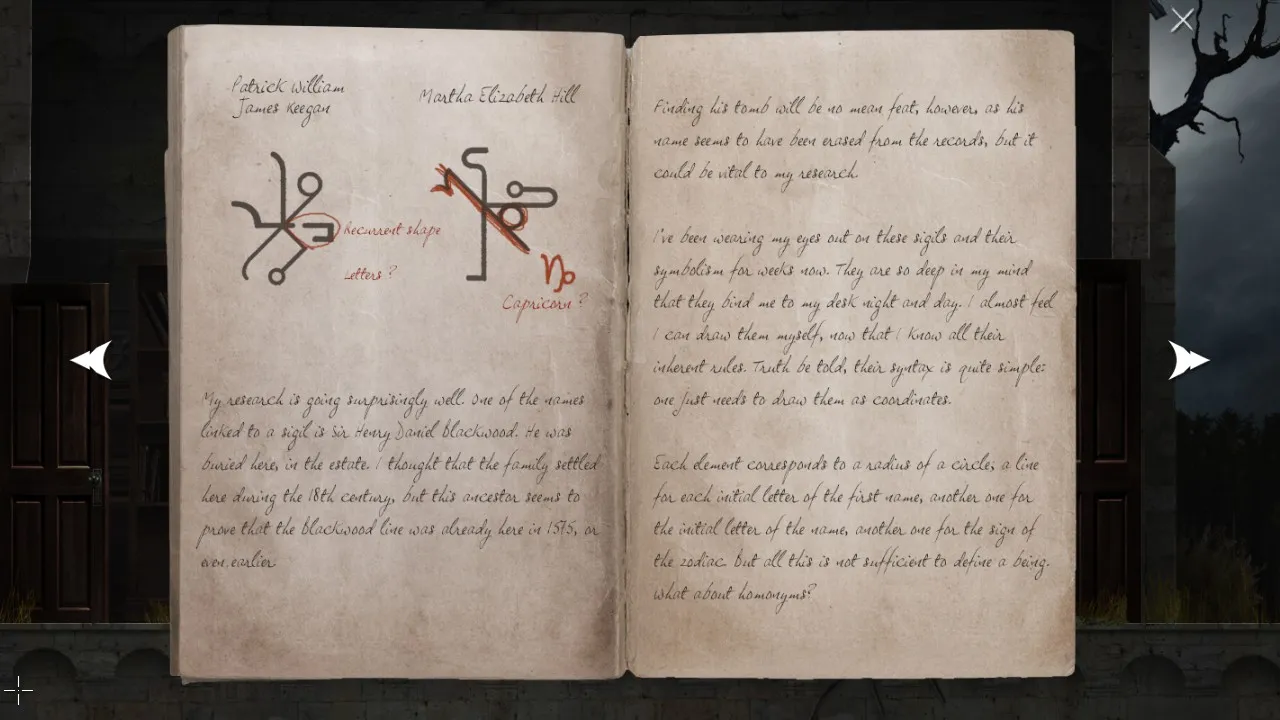 Patrick William
James Keegan
Martha Elizabeth Hill
Recurrent shape
Letters ?
Capricorn ?
My research is going surprisingly well. One of the names
linked to a sigil is Sir Henry Daniel Blackwood. He was
buried here, in the estate. I thought that the family settled
here during the 18th century, but this ancestor seems to
prove that the Blackwood line was already here in 1575, or
even earlier.
Finding his tomb will be no mean feat, however, as his
name seems to have been erased from the records, but it
could be vital to my research.
I've been wearing my eyes out on these sigils and their
symbolism for weeks now. They are so deep in my mind
that they bind me to my desk night and day. I almost feel
I can draw them myself, now that I know all their
inherent rules. Truth be told, their syntax is quite simple:
one just needs to draw them as coordinates.
Each element corresponds to a radius of a circle; a line
for each initial letter of the first name, another one for
the initial letter of the name, another one for the sign of
the zodiac. But all this is not sufficient to define a being.
What about homonyms?